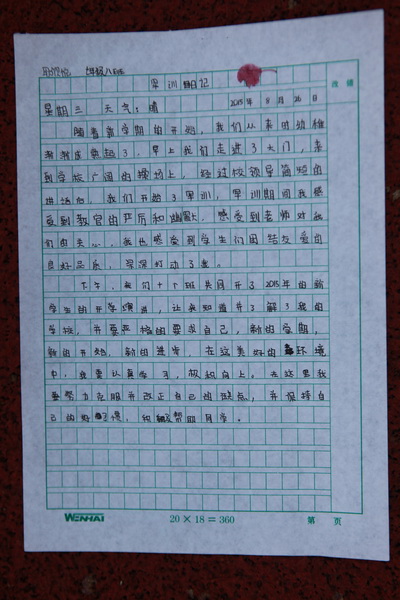 七年级八班
军训日记
改错
星期三 天气:晴 2015年8月26日
随着新学期的开始,我们从来时幼稚
了。早上我们走进了大门,来
到学校广阔的操场上,经过校领导简短的
讲话后,我们开始了军训,军训期间我感
受到教官的严厉和幽默,感受到老师对我
们的关心,我也感受到学生们团结友爱的
良好品质,深深打动了我。
下午,我们十个班共同开了2015年的新
学生的开学演讲,让我知道并了解了我的
学校,并要严格的要求自己,新的学期,
新的开始,新的进步,在这美好的环境
中,我要认真学习,积极向上。在这里我
要努力克服并改正自己的缺点,并保持自
己的好习惯,积极帮助同学。
WENHAI 20×18=360 第 页